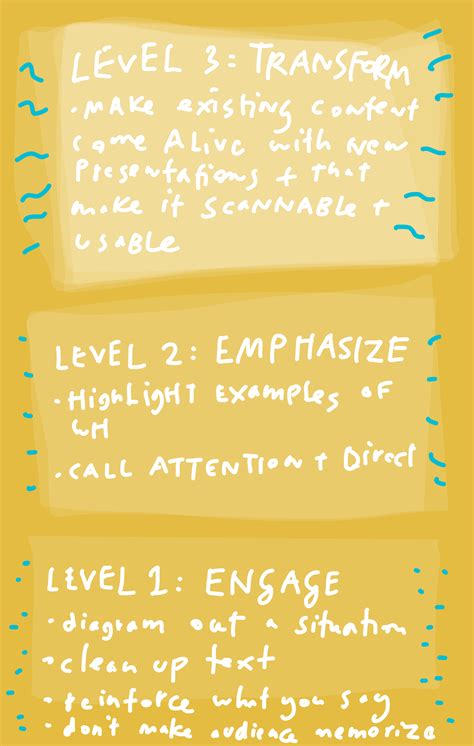 LEVEL 3: TRANSFORM
• MAKE existing content
come Alive with new
Presentations + that
make it SCANNABLE +
USABLE
LEVEL 2: EMPHASIZE
• HigHLigHT Examples OF
WH
• CALL ATTENTION + Direct
LEVEL 1: ENGAGE
• diagram out a situation
• clean up text
• reinforce what you say
• don't make audience memorize